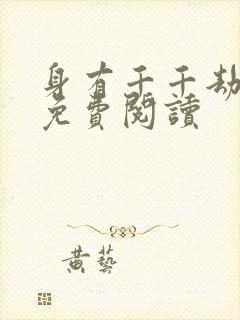 身有千千劫
免費閱讀
黄藝